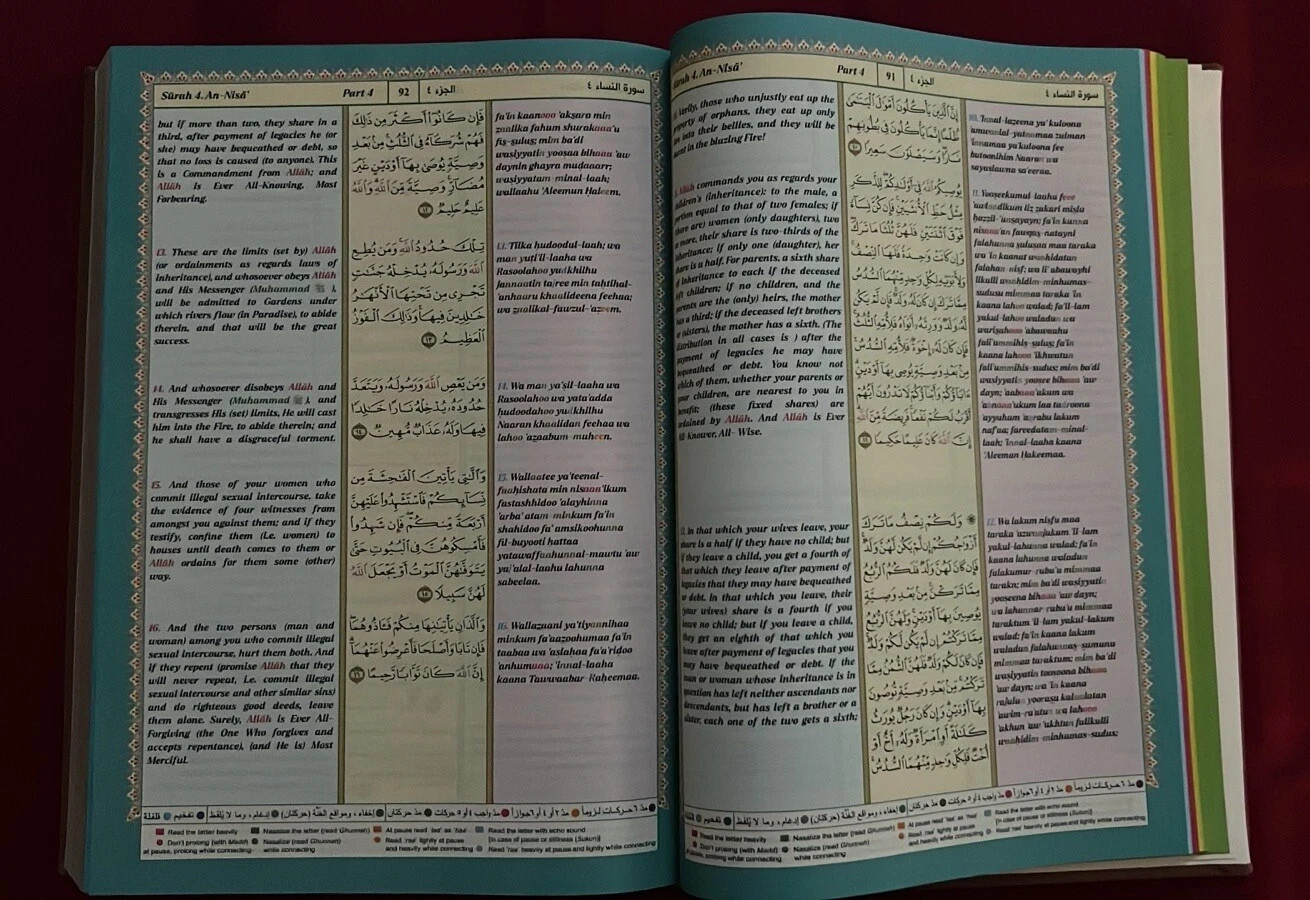 Sūrah 4. An-Nisā'
Part 4
91
الجزء ٤
سورة النساء ٤
Verily, those who unjustly eat up the
property of orphans, they eat up only
fire into their bellies, and they will be
burnt in the blazing Fire!
Allāh commands you as regards your
children's (inheritance): to the male, a
portion equal to that of two females; if
(there are) women (only daughters), two
or more, their share is two-thirds of the
inheritance; if only one (daughter), her
share is a half. For parents, a sixth share
of inheritance to each if the deceased
left children; if no children, and the
parents are the (only) heirs, the mother
has a third; if the deceased left brothers
or (sisters), the mother has a sixth. (The
distribution in all cases is ) after the
payment of legacies he may have
bequeathed or debt. You know not
which of them, whether your parents or
your children, are nearest to you in
benefit; (these fixed shares) are
ordained by Allāh. And Allāh is Ever
All-Knower, All- Wise.
12. In that which your wives leave, your
share is a half if they have no child; but
if they leave a child, you get a fourth of
that which they leave after payment of
legacies that they may have bequeathed
or debt. In that which you leave, their
(your wives) share is a fourth if you
leave no child; but if you leave a child,
they get an eighth of that which you
leave after payment of legacies that you
may have bequeathed or debt. If the
man or woman whose inheritance is in
question has left neither ascendants nor
descendants, but has left a brother or a
sister, each one of the two gets a sixth;
إِنَّ الَّذِينَ يَأْكُلُونَ أَمْوَالَ الْيَتَامَى
ظُلْمًا إِنَّمَا يَأْكُلُونَ فِي بُطُونِهِمْ
نَارًا وَسَيَصْلَوْنَ سَعِيرًا ١٠
يُوصِيكُمُ اللَّهُ فِي أَوْلَادِكُمْ لِلذَّكَرِ
مِثْلُ حَظِّ الْأُنثَيَيْنِ فَإِن كُنَّ نِسَاءً
فَوْقَ اثْنَتَيْنِ فَلَهُنَّ ثُلُثَا مَا تَرَكَ
وَإِن كَانَتْ وَاحِدَةً فَلَهَا النِّصْفُ
وَلِأَبَوَيْهِ لِكُلِّ وَاحِدٍ مِّنْهُمَا السُّدُسُ
مِمَّا تَرَكَ إِن كَانَ لَهُ وَلَدٌ فَإِن لَّمْ يَكُن
لَّهُ وَلَدٌ وَوَرِثَهُ أَبَوَاهُ فَلِأُمِّهِ الثُّلُثُ
فَإِن كَانَ لَهُ إِخْوَةٌ فَلِأُمِّهِ السُّدُسُ
مِنْ بَعْدِ وَصِيَّةٍ يُوصِي بِهَا أَوْ دَيْنٍ
آبَاؤُكُمْ وَأَبْنَاؤُكُمْ لَا تَدْرُونَ أَيُّهُمْ
أَقْرَبُ لَكُمْ نَفْعًا فَرِيضَةً مِّنَ اللَّهِ
إِنَّ اللَّهَ كَانَ عَلِيمًا حَكِيمًا ١١
وَلَكُمْ نِصْفُ مَا تَرَكَ
أَزْوَاجُكُمْ إِن لَّمْ يَكُن لَّهُنَّ وَلَدٌ
فَإِن كَانَ لَهُنَّ وَلَدٌ فَلَكُمُ الرُّبُعُ
مِمَّا تَرَكْنَ مِنْ بَعْدِ وَصِيَّةٍ
يُوصِينَ بِهَا أَوْ دَيْنٍ وَلَهُنَّ الرُّبُعُ
مِمَّا تَرَكْتُمْ إِن لَّمْ يَكُن لَّكُمْ وَلَدٌ
فَإِن كَانَ لَكُمْ وَلَدٌ فَلَهُنَّ الثُّمُنُ مِمَّا
تَرَكْتُم مِّنْ بَعْدِ وَصِيَّةٍ تُوصُونَ
بِهَا أَوْ دَيْنٍ وَإِن كَانَ رَجُلٌ يُورَثُ
كَلَالَةً أَوِ امْرَأَةٌ وَلَهُ أَخٌ أَوْ
أُخْتٌ فَلِكُلِّ وَاحِدٍ مِّنْهُمَا السُّدُسُ
10. 'Innal-lazeena ya'kuloona
'amwaalal-yataamaa zulman
'innamaa ya'kuloona fee
butoonihim Naaran wa
sayaslawna sa'eeraa.
11. Yooseekumul-laahu feee
'awlaadikum liz zakari mislu
hazzil-'unsayayn; fa'in kunna
nisaaa'an fawqas-natayni
falahunna sulusaa maa taraka
wa 'in kaanat waahidatan
falahan-nisf; wa li' abawayhi
likulli waahidim-minhumas-
sudusu mimmaa taraka 'in
kaana lahoo walad; fa'il-lam
yakul-lahoo waladun wa
warisahooo 'abawaahu
fali'ummihis-sulus; fa'in
kaana lahooo 'ikhwatun
fali'ummihis-sudus; mim ba'di
wasiyyatin yoosee bihaaa 'aw
dayn; 'aabaaa'ukum wa
'abnaaa'ukum laa tadroona
'ayyuhum 'aqrabu lakum
naf'aa; fareedatam-minal-
laah; 'innal-laaha kaana
'Aleeman Hakeemaa.
12. Wa lakum nisfu maa
taraka 'azwaajukum 'il-lam
yakul-lahunna walad; fa'in
kaana lahunna waladun
falakumur-rubu'u mimmaa
tarakn; mim ba'di wasiyyatin
yooseena bihaaa 'aw dayn;
wa lahunnar-rubu'u mimmaa
taraktum 'il-lam yakul-lakum
walad; fa'in kaana lakum
waladun falahunnas-sumunu
mimmaa taraktum; mim ba'di
wasiyyatin toosoona bihaaa
'aw dayn; wa 'in kaana
rajuluny yoorasu kalaalatan
'awim-ra'atun wa lahooo
'akhun 'aw 'ukhtun falikulli
waahidim-minhumas-sudus;
Sūrah 4. An-Nisā'
Part 4
92
الجزء ٤
سورة النساء ٤
but if more than two, they share in a
third, after payment of legacies he (or
she) may have bequeathed or debt, so
that no loss is caused (to anyone). This
is a Commandment from Allāh; and
Allāh is Ever All-Knowing, Most
Forbearing.
13. These are the limits (set by) Allāh
(or ordainments as regards laws of
inheritance), and whosoever obeys Allāh
and His Messenger (Muhammad ﷺ),
will be admitted to Gardens under
which rivers flow (in Paradise), to abide
therein, and that will be the great
success.
14. And whosoever disobeys Allāh and
His Messenger (Muhammad ﷺ), and
transgresses His (set) limits, He will cast
him into the Fire, to abide therein; and
he shall have a disgraceful torment.
15. And those of your women who
commit illegal sexual intercourse, take
the evidence of four witnesses from
amongst you against them; and if they
testify, confine them (i.e. women) to
houses until death comes to them or
Allāh ordains for them some (other)
way.
16. And the two persons (man and
woman) among you who commit illegal
sexual intercourse, hurt them both. And
if they repent (promise Allāh that they
will never repeat, i.e. commit illegal
sexual intercourse and other similar sins)
and do righteous good deeds, leave
them alone. Surely, Allāh is Ever All-
Forgiving (the One Who forgives and
accepts repentance), (and He is) Most
Merciful.
فَإِن كَانُوا أَكْثَرَ مِن ذَلِكَ
فَهُمْ شُرَكَاءُ فِي الثُّلُثِ مِنْ بَعْدِ
وَصِيَّةٍ يُوصَى بِهَا أَوْ دَيْنٍ غَيْرَ
مُضَارٍّ وَصِيَّةً مِّنَ اللَّهِ وَاللَّهُ
عَلِيمٌ حَلِيمٌ ١٢
تِلْكَ حُدُودُ اللَّهِ وَمَن يُطِعِ
اللَّهَ وَرَسُولَهُ يُدْخِلْهُ جَنَّاتٍ
تَجْرِي مِن تَحْتِهَا الْأَنْهَارُ
خَالِدِينَ فِيهَا وَذَلِكَ الْفَوْزُ
الْعَظِيمُ ١٣
وَمَن يَعْصِ اللَّهَ وَرَسُولَهُ وَيَتَعَدَّ
حُدُودَهُ يُدْخِلْهُ نَارًا خَالِدًا
فِيهَا وَلَهُ عَذَابٌ مُّهِينٌ ١٤
وَاللَّاتِي يَأْتِينَ الْفَاحِشَةَ مِن
نِّسَائِكُمْ فَاسْتَشْهِدُوا عَلَيْهِنَّ
أَرْبَعَةً مِّنكُمْ فَإِن شَهِدُوا
فَأَمْسِكُوهُنَّ فِي الْبُيُوتِ حَتَّى
يَتَوَفَّاهُنَّ الْمَوْتُ أَوْ يَجْعَلَ اللَّهُ
لَهُنَّ سَبِيلًا ١٥
وَاللَّذَانِ يَأْتِيَانِهَا مِنكُمْ فَآذُوهُمَا
فَإِن تَابَا وَأَصْلَحَا فَأَعْرِضُوا عَنْهُمَا
إِنَّ اللَّهَ كَانَ تَوَّابًا رَّحِيمًا ١٦
fa'in kaanooo 'aksara min
zaalika fahum shurakaaa'u
fis-sulus; mim ba'di
wasiyyatin yoosaa bihaaa 'aw
daynin ghayra mudaaarr;
wasiyyatam minal-laah;
wallaahu 'Aleemun Haleem.
13. Tilka hudoodul-laah; wa
man yuti'il-laaha wa
Rasoolahoo yudkhilhu
Jannaatin tajree min tahtihal-
'anhaaru khaalideena feehaa;
wa zaalikal-fawzul-'azeem.
14. Wa man ya'sil-laaha wa
Rasoolahoo wa yata'adda
hudoodahoo yudkhilhu
Naaran khaalidan feehaa wa
lahoo 'azaabum-muheen.
15. Wallaatee ya'teenal-
faahishata min nisaaa'ikum
fastashhidoo 'alayhinna
'arba'atam-minkum fa'in
shahidoo fa'amsikoohunna
fil-buyooti hattaa
yatawaffaahunnal-mawtu 'aw
yaj'alal-laahu lahunna
sabeelaa.
16. Wallazaani ya'tiyaanihaa
minkum fa'aazoohumaa fa'in
taabaa wa 'aslahaa fa'a'ridoo
'anhumaaa; 'innal-laaha
kaana Tawwaabar-Raheemaa.
مدّ ٦ حركات لزوماً مدّ ٢ أو ٤ أو ٦ جوازاً مدّ واجب ٤ أو ٥ حركات مدّ حركتان إخفاء، ومواقع الغُنَّة (حركتان) إدغام، وما لا يُلفَظ تفخيم قلقلة
Read the letter heavily Nasalize the letter (read Ghunnah) At pause read 'taa' as 'haa' Read the letter with echo sound
Don't prolong (with Madd) Nasalize (read Ghunnah) Read 'raa' lightly at pause [in case of pause or stillness (Sukun)]
at pause, prolong while connecting while connecting and heavily while connecting Read 'raa' heavily at pause and lightly while connecting
مدّ ٦ حركات لزوماً مدّ ٢ أو ٤ أو ٦ جوازاً مدّ واجب ٤ أو ٥ حركات مدّ حركتان إخفاء، ومواقع الغُنَّة (حركتان) إدغام، وما لا يُلفَظ تفخيم قلقلة
Read the letter heavily Nasalize the letter (read Ghunnah) At pause read 'taa' as 'haa' Read the letter with echo sound
Don't prolong (with Madd) Nasalize (read Ghunnah) Read 'raa' lightly at pause [in case of pause or stillness (Sukun)]
at pause, prolong while connecting while connecting and heavily while connecting Read 'raa' heavily at pause and lightly while connecting